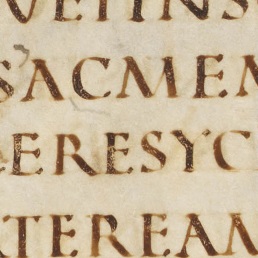 VEIINS
SACMEM
ERESYC
ATEREAM